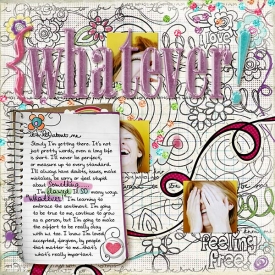 love
{whatever!
it's all about me
Slowly I'm getting there. It's not
just pretty words, even a long life
is short. I'll never be perfect,
or measure up to every standard.
I'll always have doubts, issues, make
mistakes, be sorry or feel stupid
about something.
I'm flawed in so many ways.
Whatever. I'm learning to
embrace the sentiment. I'm going
to be true to me, continue to grow
as a person, but I'm going to make
the effort to be really okay
with who I am. I know I'm loved,
accepted, forgiven, by people
that matter to me...that's
what's really important.
feeling
free